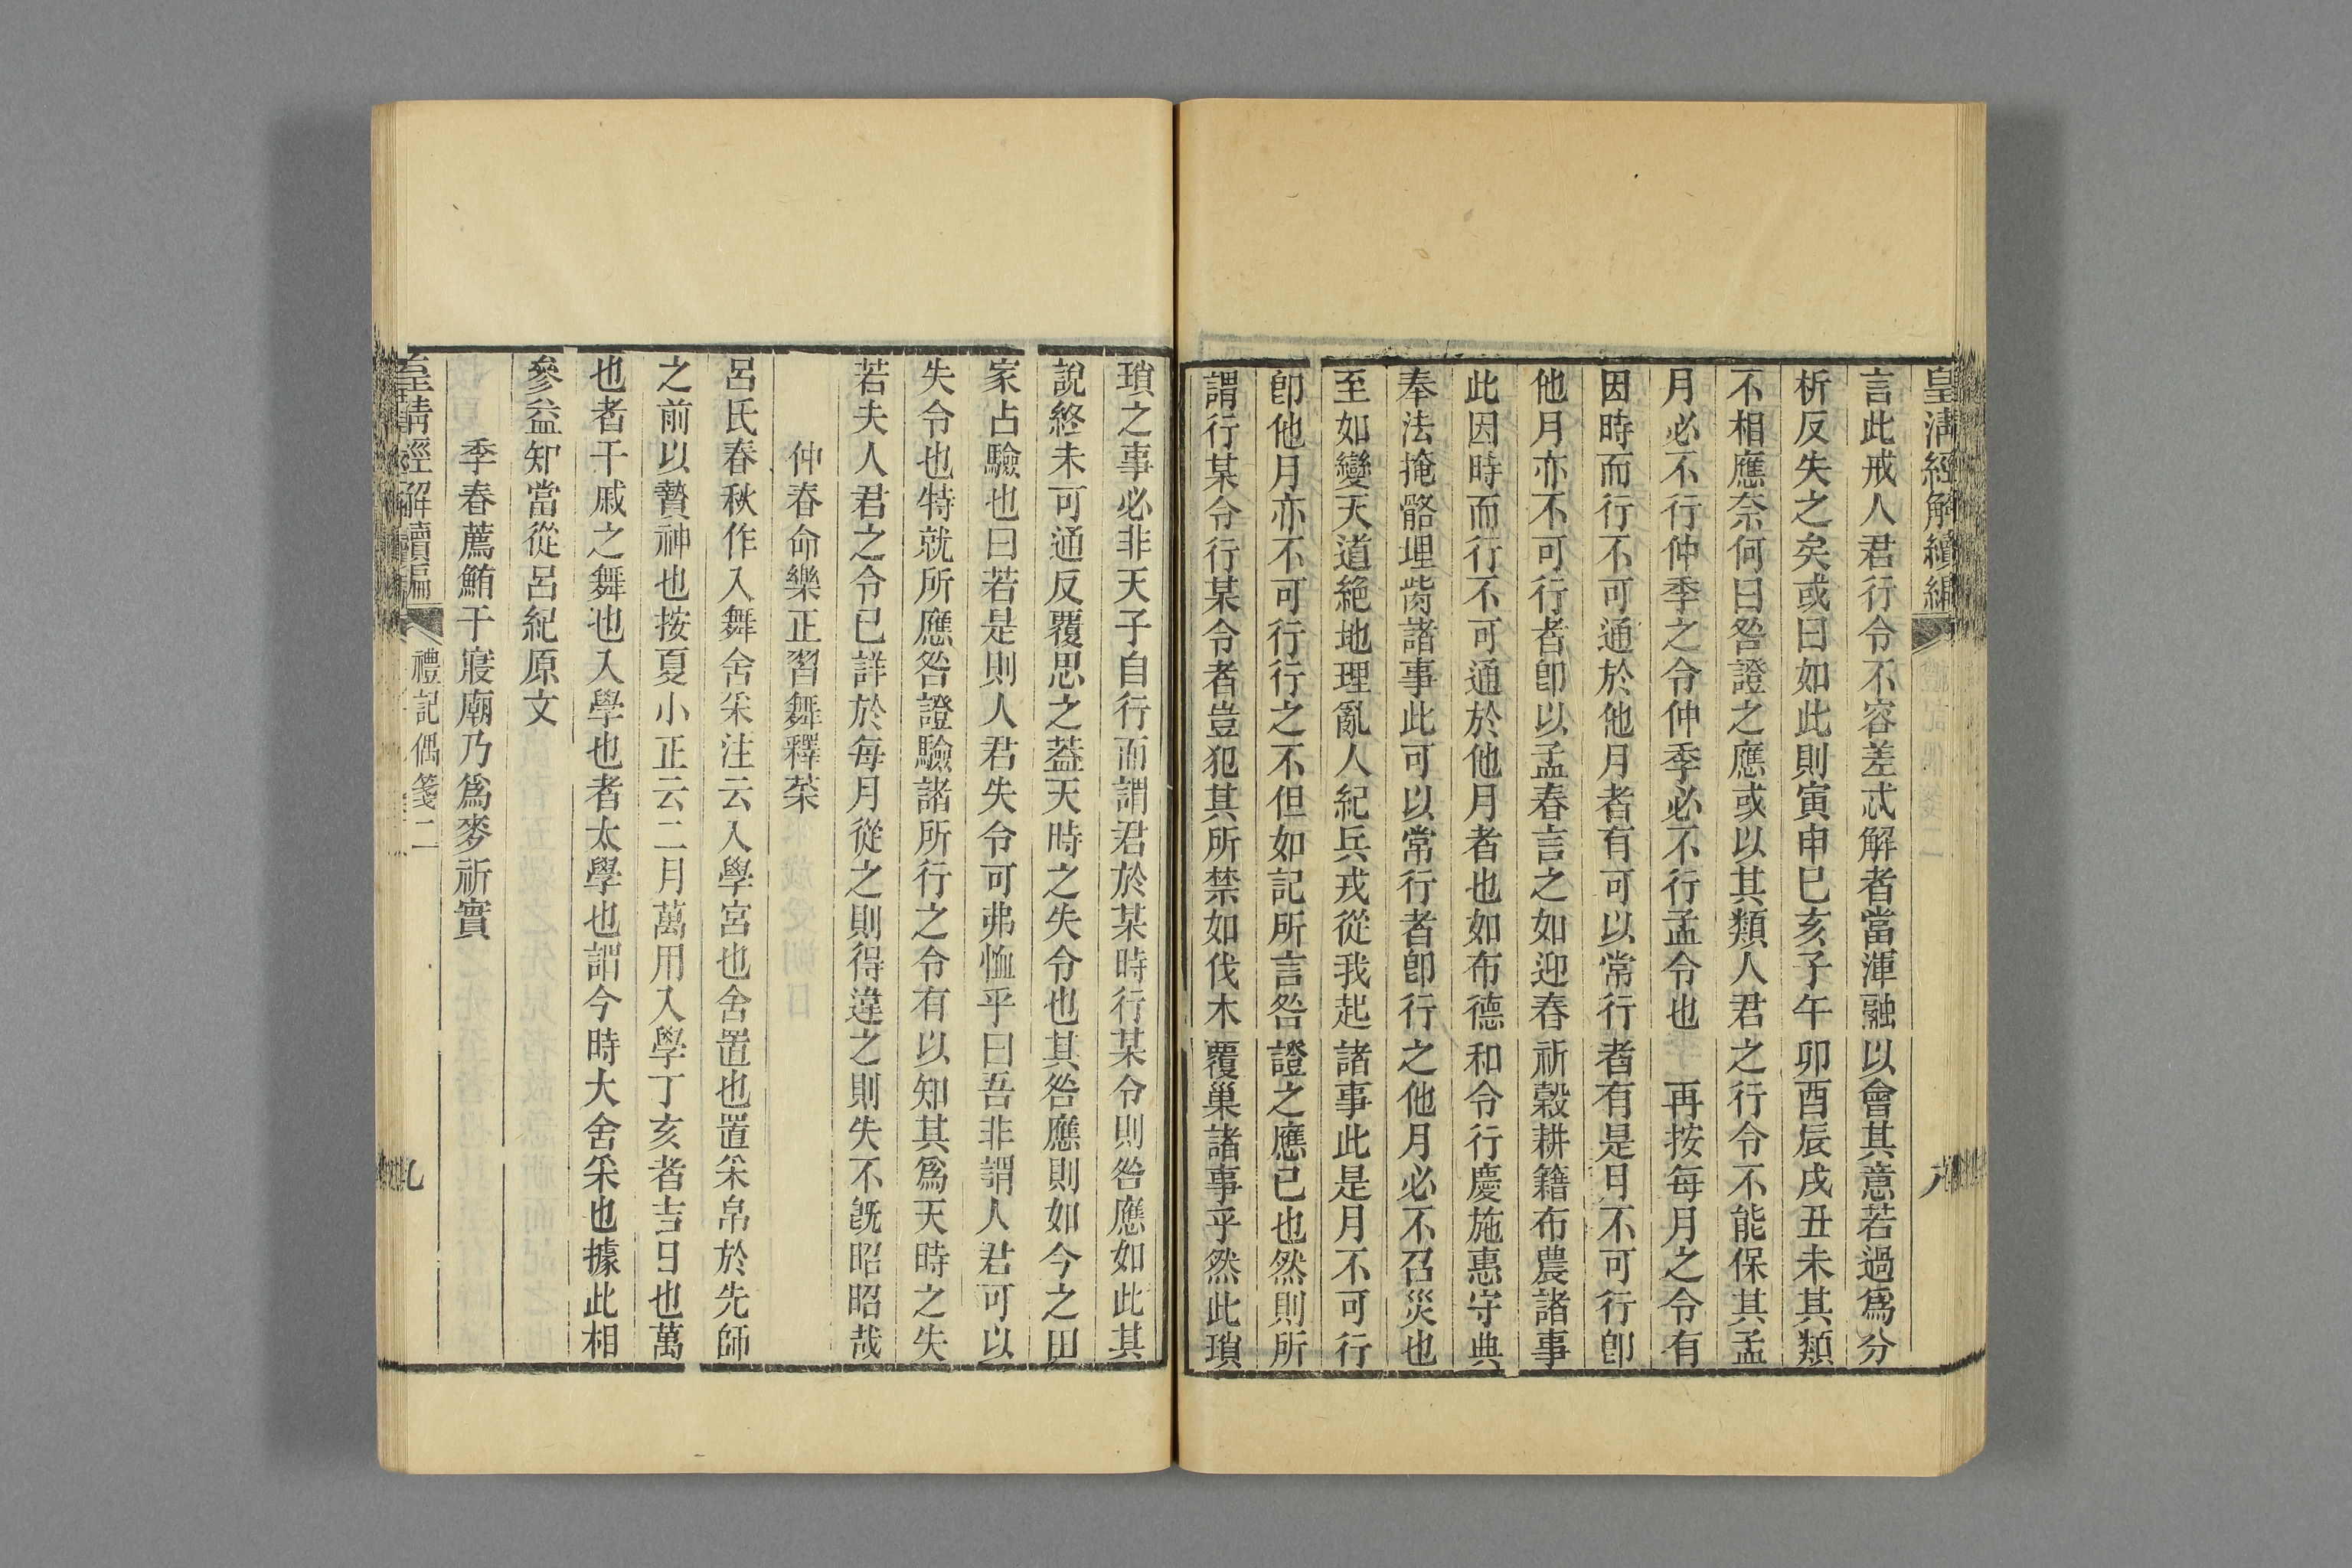 皇清經解續編
言此戒人君行令不容差忒解者當渾融以會其意若過爲分
析反失之矣或曰如此則寅申巳亥子午卯酉辰戌丑未其類
不相應奈何曰咎證之應或以其類人君之行令不能保其孟
月必不行仲季之令仲季必不行孟令也　再按每月之令有
因時而行不可通於他月者有可以常行者有是月不可行卽
他月亦不可行者卽以孟春言之如迎春祈穀耕籍布農諸事
此因時而行不可通於他月者也如布德和令行慶施惠守典
奉法掩骼埋胔諸事此可以常行者卽行之他月必不召災也
至如變天道絕地理亂人紀兵戎從我起諸事此是月不可行
卽他月亦不可行行之不但如記所言咎證之應已也然則所
謂行某令行某令者豈犯其所禁如伐木覆巢諸事乎然此瑣
瑣之事必非天子自行而謂君於某時行某令則咎應如此其
說終未可通反覆思之葢天時之失令也其咎應則如今之田
家占驗也曰若是則人君失令可弗恤乎曰吾非謂人君可以
失令也特就所應咎證驗諸所行之令有以知其爲天時之失
若夫人君之令已詳於每月從之則得違之則失不旣昭昭哉
仲春命樂正習舞釋菜
呂氏春秋作入舞舍采注云入學宮也舍置也置采帛於先師
之前以贄神也按夏小正云二月萬用入學丁亥者吉日也萬
也者干戚之舞也入學也者太學也謂今時大舍采也據此相
參益知當從呂紀原文
季春薦鮪于寢廟乃爲麥祈實
皇清經解續編
禮記偶箋二
九